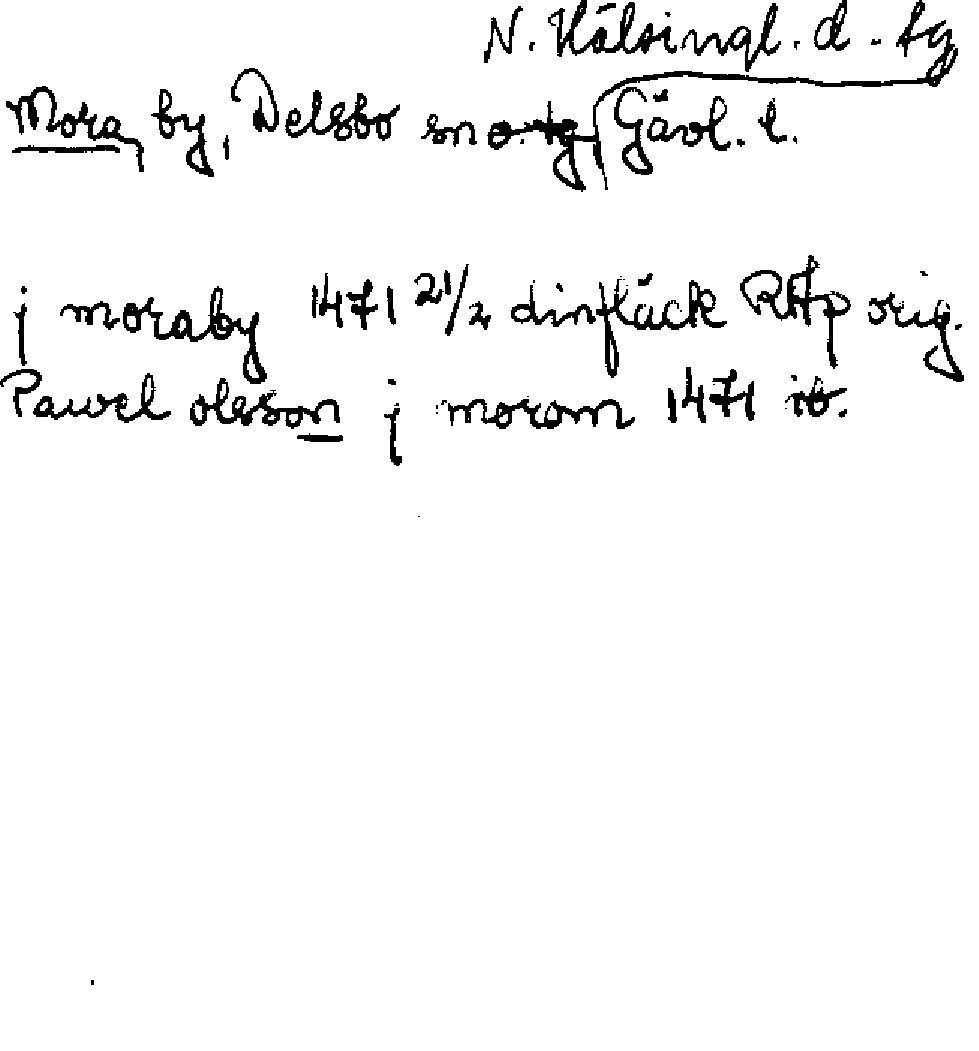 N. Hälsingl. d. tg
Mora, by, Delsbo sn o. tg, Gävl. l.
j moraby 1471 21/2 dinfläck RAp orig.
Pawel olsson j morom 1471 ib.